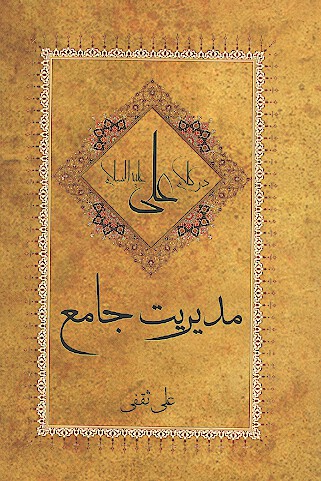 در کلام علی علیه السلام
مدیریت جامع
علی ثقفی